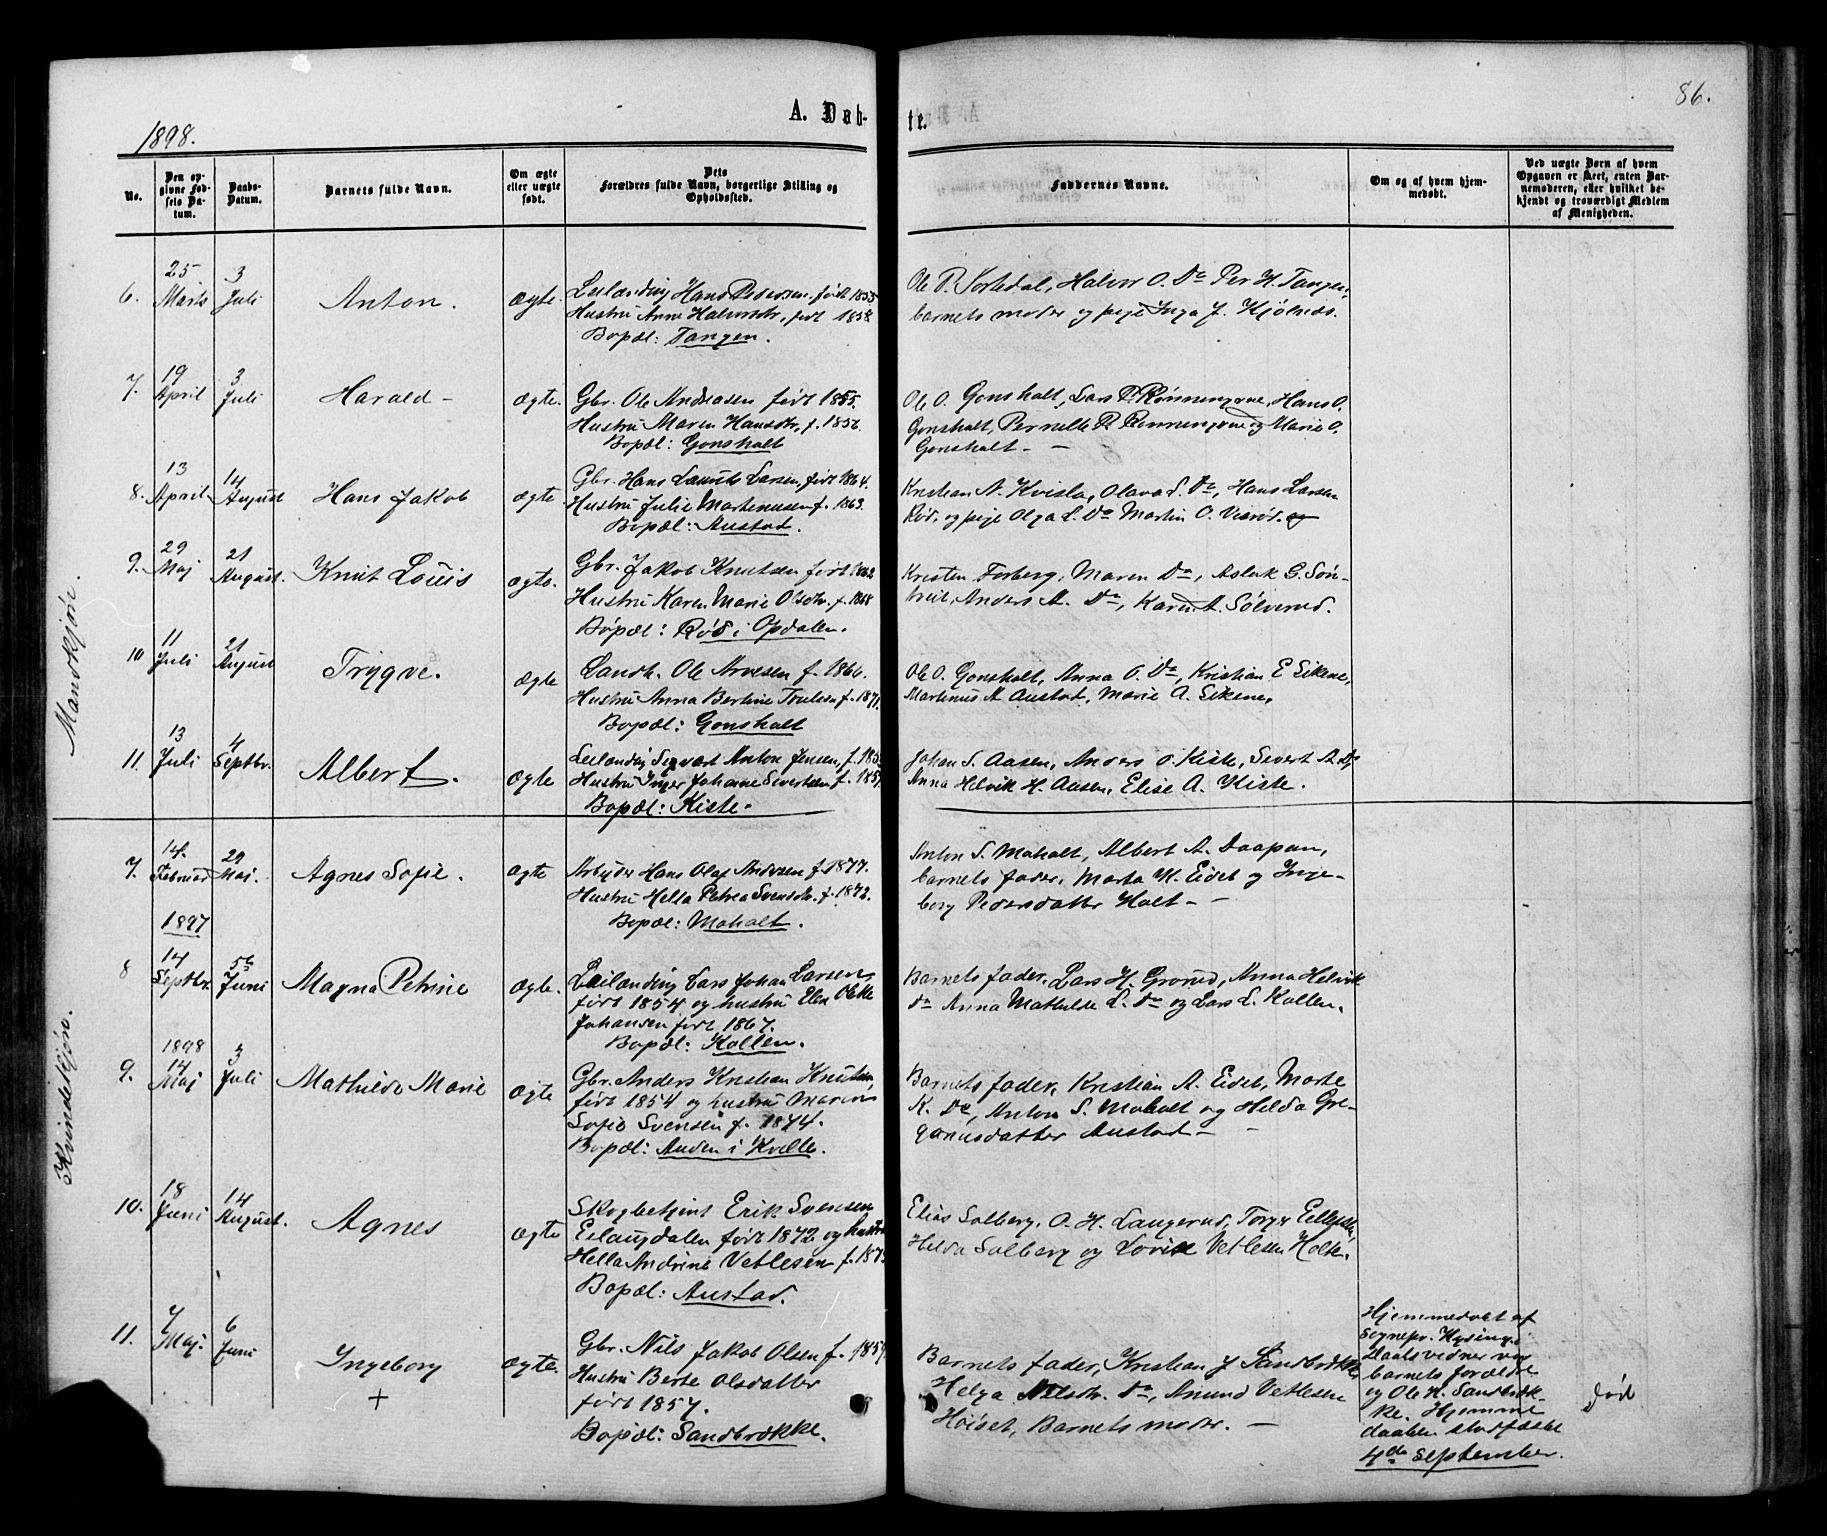 86.
1898.
A. Døb-
te.
No.
Den op-
givne Fød-
sels Da-
tum.
Daabs-
Datum.
Barnets fulde Navn.
Om ægte
eller uægte
født.
Dets
Forældres fulde Navn, borgerlige Stilling og
Opholdssted.
Faddernes Navne.
Om og af hvem hjem-
medøbt.
Ved uægte Børn af hvem
Opgaven er skeet, enten Bar-
nemoderen, eller hvilket be-
kjendt og troværdigt Medlem
af Menigheden.
Mandkjøn.
6.
25
Marts
3
Juli
Anton.
ægte.
Leilænding Hans Pedersen, født 1855
Hustru Anne Halvorsdtr, født 1858
Bopæl: Tangen.
Ole P. Sortedal, Halvor O. Do Per H. Tangen,
barnets moder og pige Inga J. Kjølnæs.
7.
19
April
3
Juli
Harald -
ægte.
Gbr. Ole Andreasen født 1855.
Hustru Maren Hansdtr, f. 1856.
Bopæl: Gonsholt
Ole O. Gonsholt, Lars P. Rønningene, Hans O.
Gonsholt, Pernelle P. Rønningene og Marie O.
Gonsholt -
8.
13
April
14
August
Hans Jakob
ægte.
Gbr. Hans Laurits Larsen, født 1864.
Hustru Julie Martinusen f. 1863.
Bopæl: Austad.
Kristian N. Kvisla, Olava S. Do, Hans Larsen
Rød, og pige Olga L. Do Martin O. Vierød.
9.
29
Maj
21
August.
Knut Louis
ægte.
Gbr. Jakob Knutsen født 1862
Hustru Karen Marie Olsdtr. f. 1868
Bopæl: Rød i Opdalen.
Kristen Forberg, Maren Do, Aslak G. Søn-
Anders A. Do, Karen A. Sølverud.
10
11
Juli
21
August
Trygve.
ægte
Landh. Ole Arvesen f. 1866.
Hustru Anna Bertine Trulsen f. 1871.
Bopæl: Gonsholt
Ole O. Gonsholt, Anna O. Do, Kristian E Eikene,
Martinus A Austad, Marie A. Eikene,
11.
13
Juli
4
Septbr.
Albert.
ægte
Leilænding Sigvart Anton Jensen, f. 185
Hustru Inger Johanne Sivertsen f. 185
Bopæl: Kiste.
Johan S. Aasen, Anders O. Kiste, Sivert A. Do
Anna Helvik H. Aasen, Elise A. Kiste.
Kvindekjøn.
7.
14.
Februar
29
Maj.
Agnes Sofie.
ægte
Arbeider Hans Olaf Andersen f. 1877.
Hustru Hella Petrea Svensdtr. f. 1872.
Bopæl: Moholt.
Anton S. Moholt, Albert A. Daapan,
barnets fader, Marta M. Eidet og Inge-
borg Pedersdatter Holt -
1897
8
14
Septbr
5te
Juni
Magna Petrine
ægte.
Leilænding Lars Johan Larsen
født 1854 og hustru Elen Olette
Johansen født 1867.
Bopæl: Kollen.
Barnets fader, Lars H. Grorud, Anna Helvik
Do Anna Mathilde L. Do og Lars L. Kollen.
1898
9.
14
Maj
3
Juli
Mathilde Marie
ægte
Gbr. Anders Kristian Knutsen,
født 1854 og hustru Maren
Sofie Svensen f. 1874.
Bopæl: Auden i Kvelle.
Barnets fader, Kristian A. Eidet, Marte
K. Do, Anton S. Moholt og Hilda Gre-
goriusdatter Austad -
10.
18
Juni
14
August.
Agnes
ægte
Skogbetjent Erik Svensen
Eilaugdalen født 1872 og hustru
Hella Andrine Vetlesen f. 187
Bopæl: Austad.
Elias Solberg, O. H. Langerud, Torger Ellefsen,
Hilda Solberg og Lovise Vetlesen Holt.
11.
7
Maj.
6
Juni
Ingeborg
+
ægte.
Gbr. Nils Jakob Olsen f. 1857
Hustru Berte Olsdatter
født 1857.
Bopæl: Sandbrække.
Barnets fader, Kristian J Sandbrække
Helga Nilsdtr. Do, Anund Vetlesen
Høiset, Barnets moder. -
Hjemmedøbt af
Sognepr. Hysing.
Daabsvidner var
barnets forældre
og Ole N. Sandbræk-
ke. Hjemme
daaben stadfæstet
4de September.
død